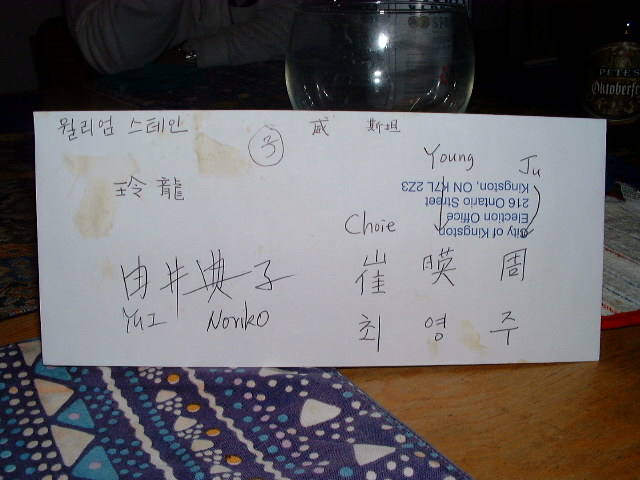 PETE'S
Oktoberfe
윌리엄 스테인 号 威 斯坦
Young Ju
玲龍
City of Kingston
Election Office
216 Ontario Street
Kingston, ON K7L 2Z3
Choie
由井典子 崔 暎 周
Yui Noriko 최 영 주